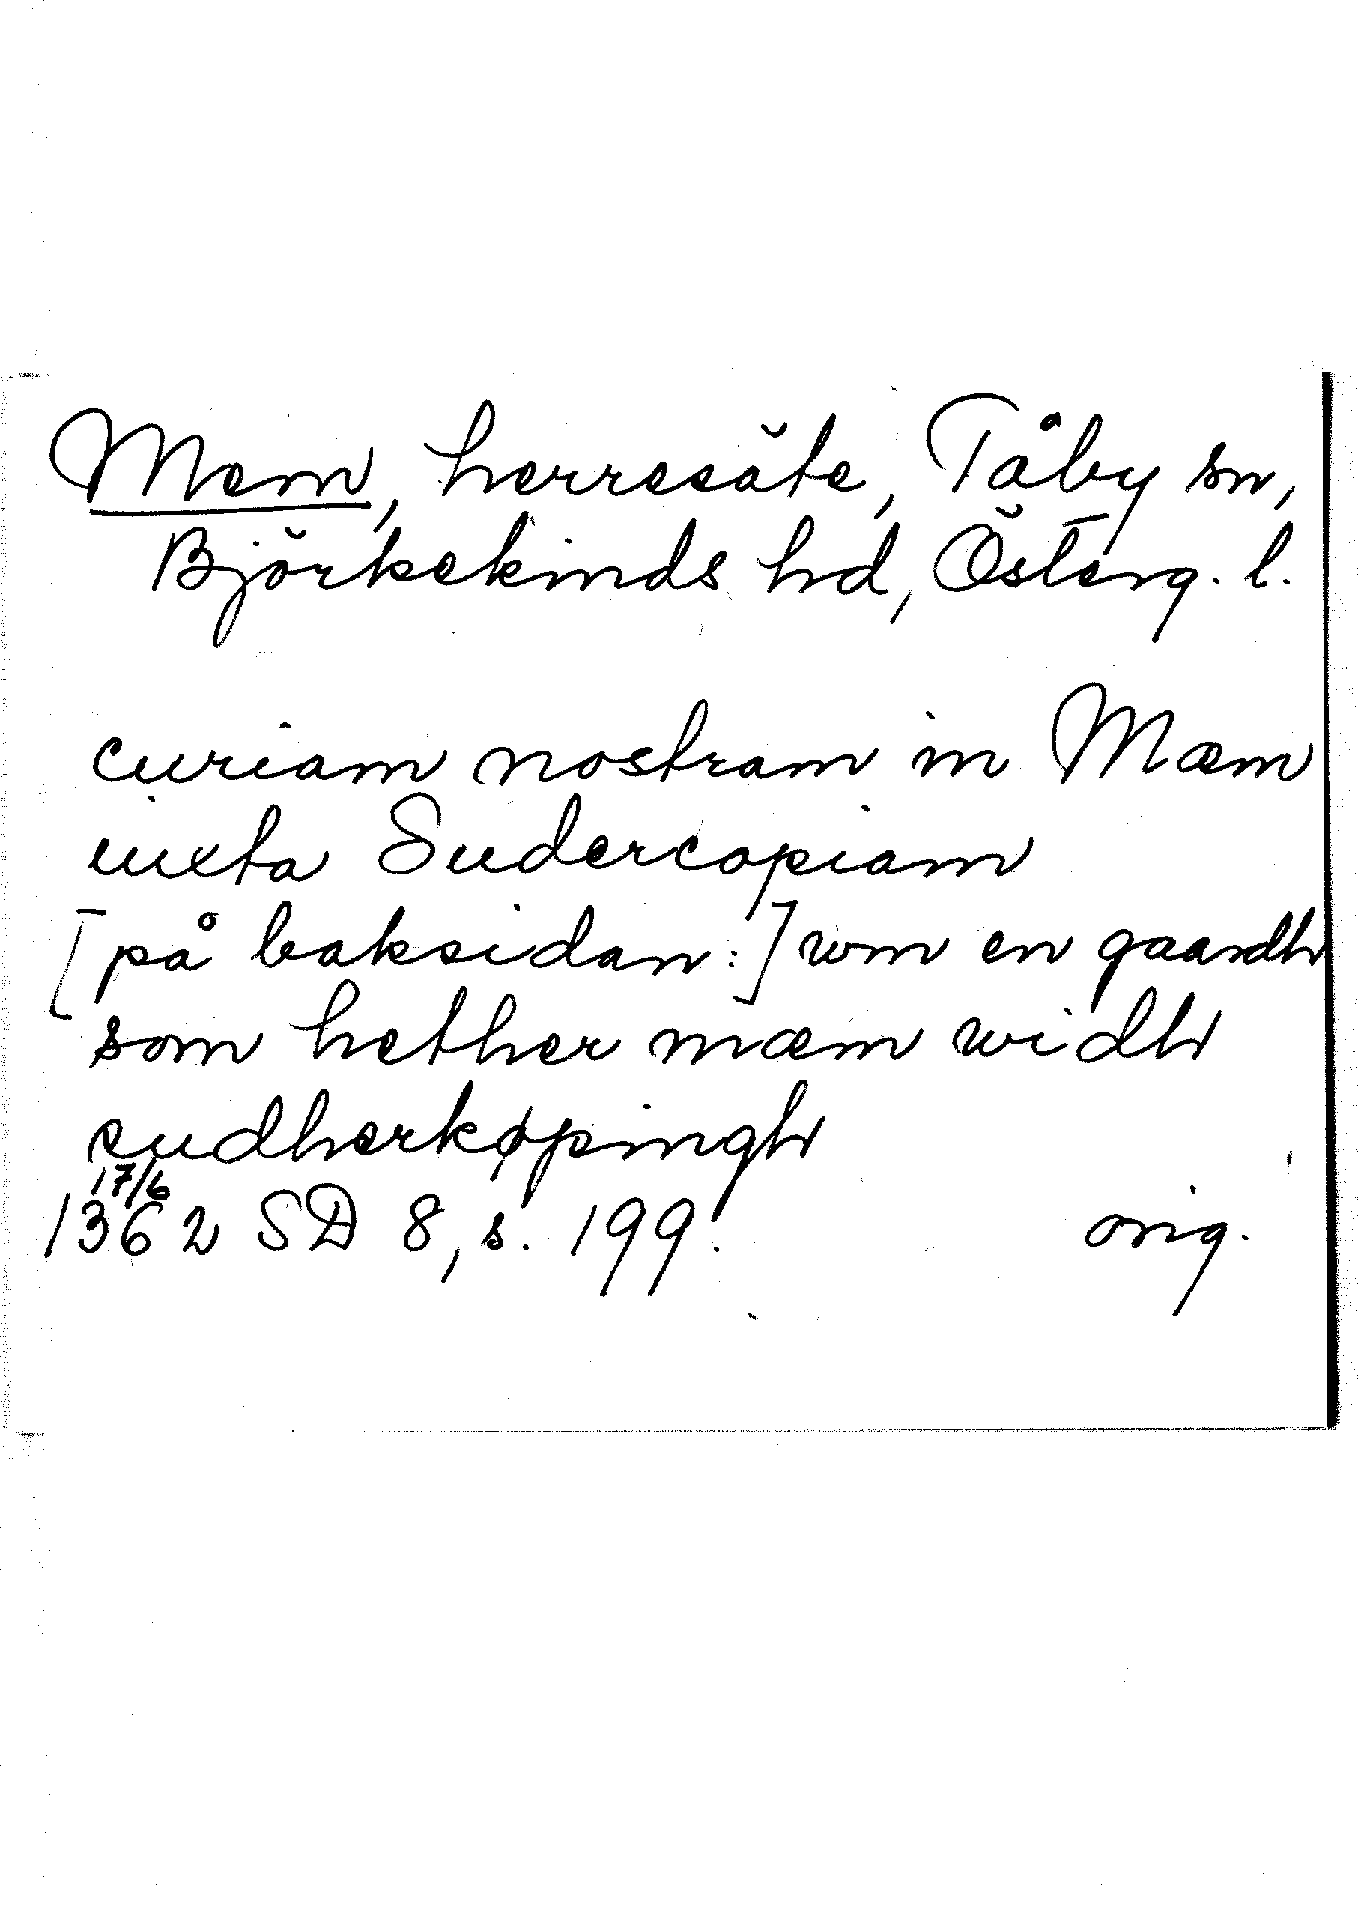 Mem, herresäte, Tåby sn,
Björkekinds hd, Österg. l.
curiam nostram in Mæm
iuxta Sudercopiam
[på baksidan:] wm en gaardh
som hether mæm widh
sudherkøpingh
17/6
1362 SD 8, s. 199. orig.